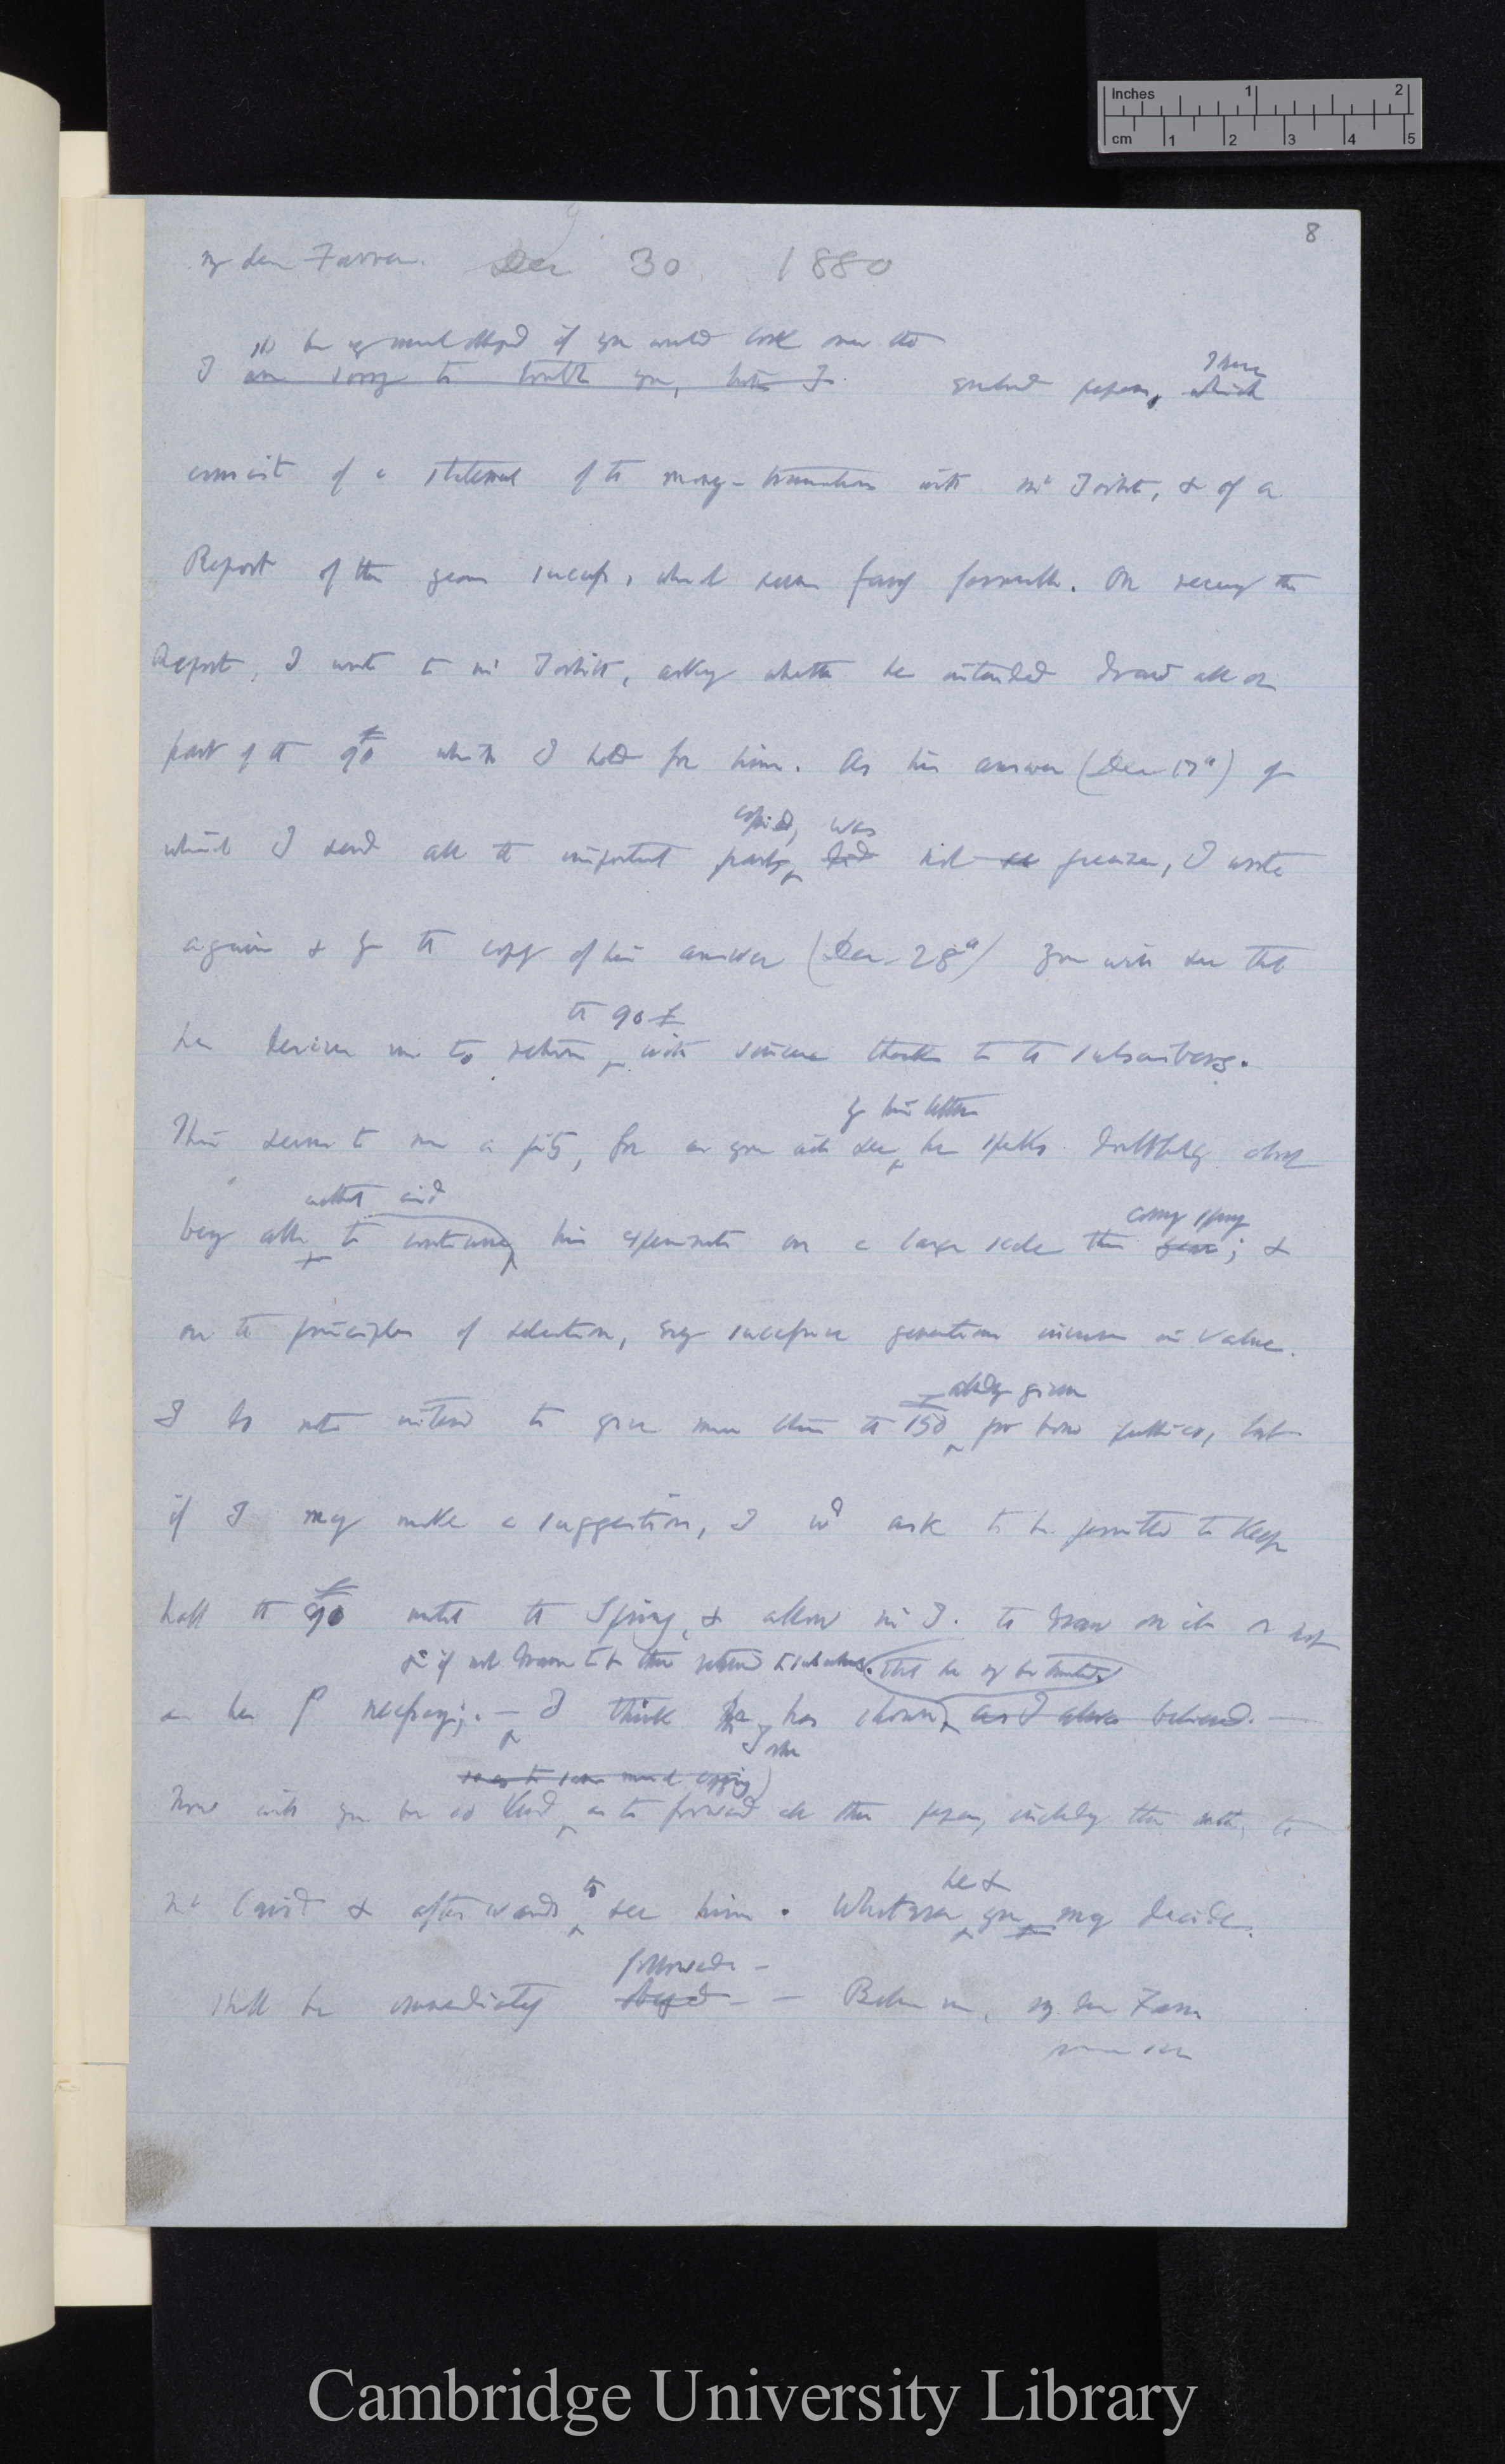 Inches 1 2
cm 1 2 3 4 5
8
My dear Farrer. Dec 30 1880
shd be very much obliged if you would look over the
I am sorry to trouble you, but I enclosed papers, These which
consist of a statement of the money-transactions with Mr Torbitt, & of a
Report of this years success, which seems fairly favourable. On receiving the
Report, I wrote to Mr Torbitt, asking whether he intended draw all or
part of the £90 which I hold for him. As his answer (Dec 17th) of
copied, was
which I send all the important parts, did not precise, I wrote
again & by the copy of his answer (Dec. 28th) you will see that
the 90£
he desires me to return with sincere thanks to the subscribers.
by his letter
This seems to me a pity, for as you will see, he speaks doubtfully about
without aid
being able to continue his experiments on a large scale this year; &
coming spring
on the principles of selection, every successive generation increases in value.
£ already given
I do not intend to give more than the 150 pro bono publico, but
if I may make a suggestion, I wd ask to be permitted to keep
hold the £90 until the Spring, & allow Mr T. to draw on it or not
& if not drawn to be then returned to subscribers. that he may be trusted.
as he necessary; — I think he has shown, as I always believed. —
so as to save much copying)
Now will you be so kind as to forward all these papers, including this note, to
to
Mr Caird & afterwards see him. Whatever you may decide
he &
followed —
shall be immediately obeyed — — Believe me, my dear Farrer
Cambridge University Library